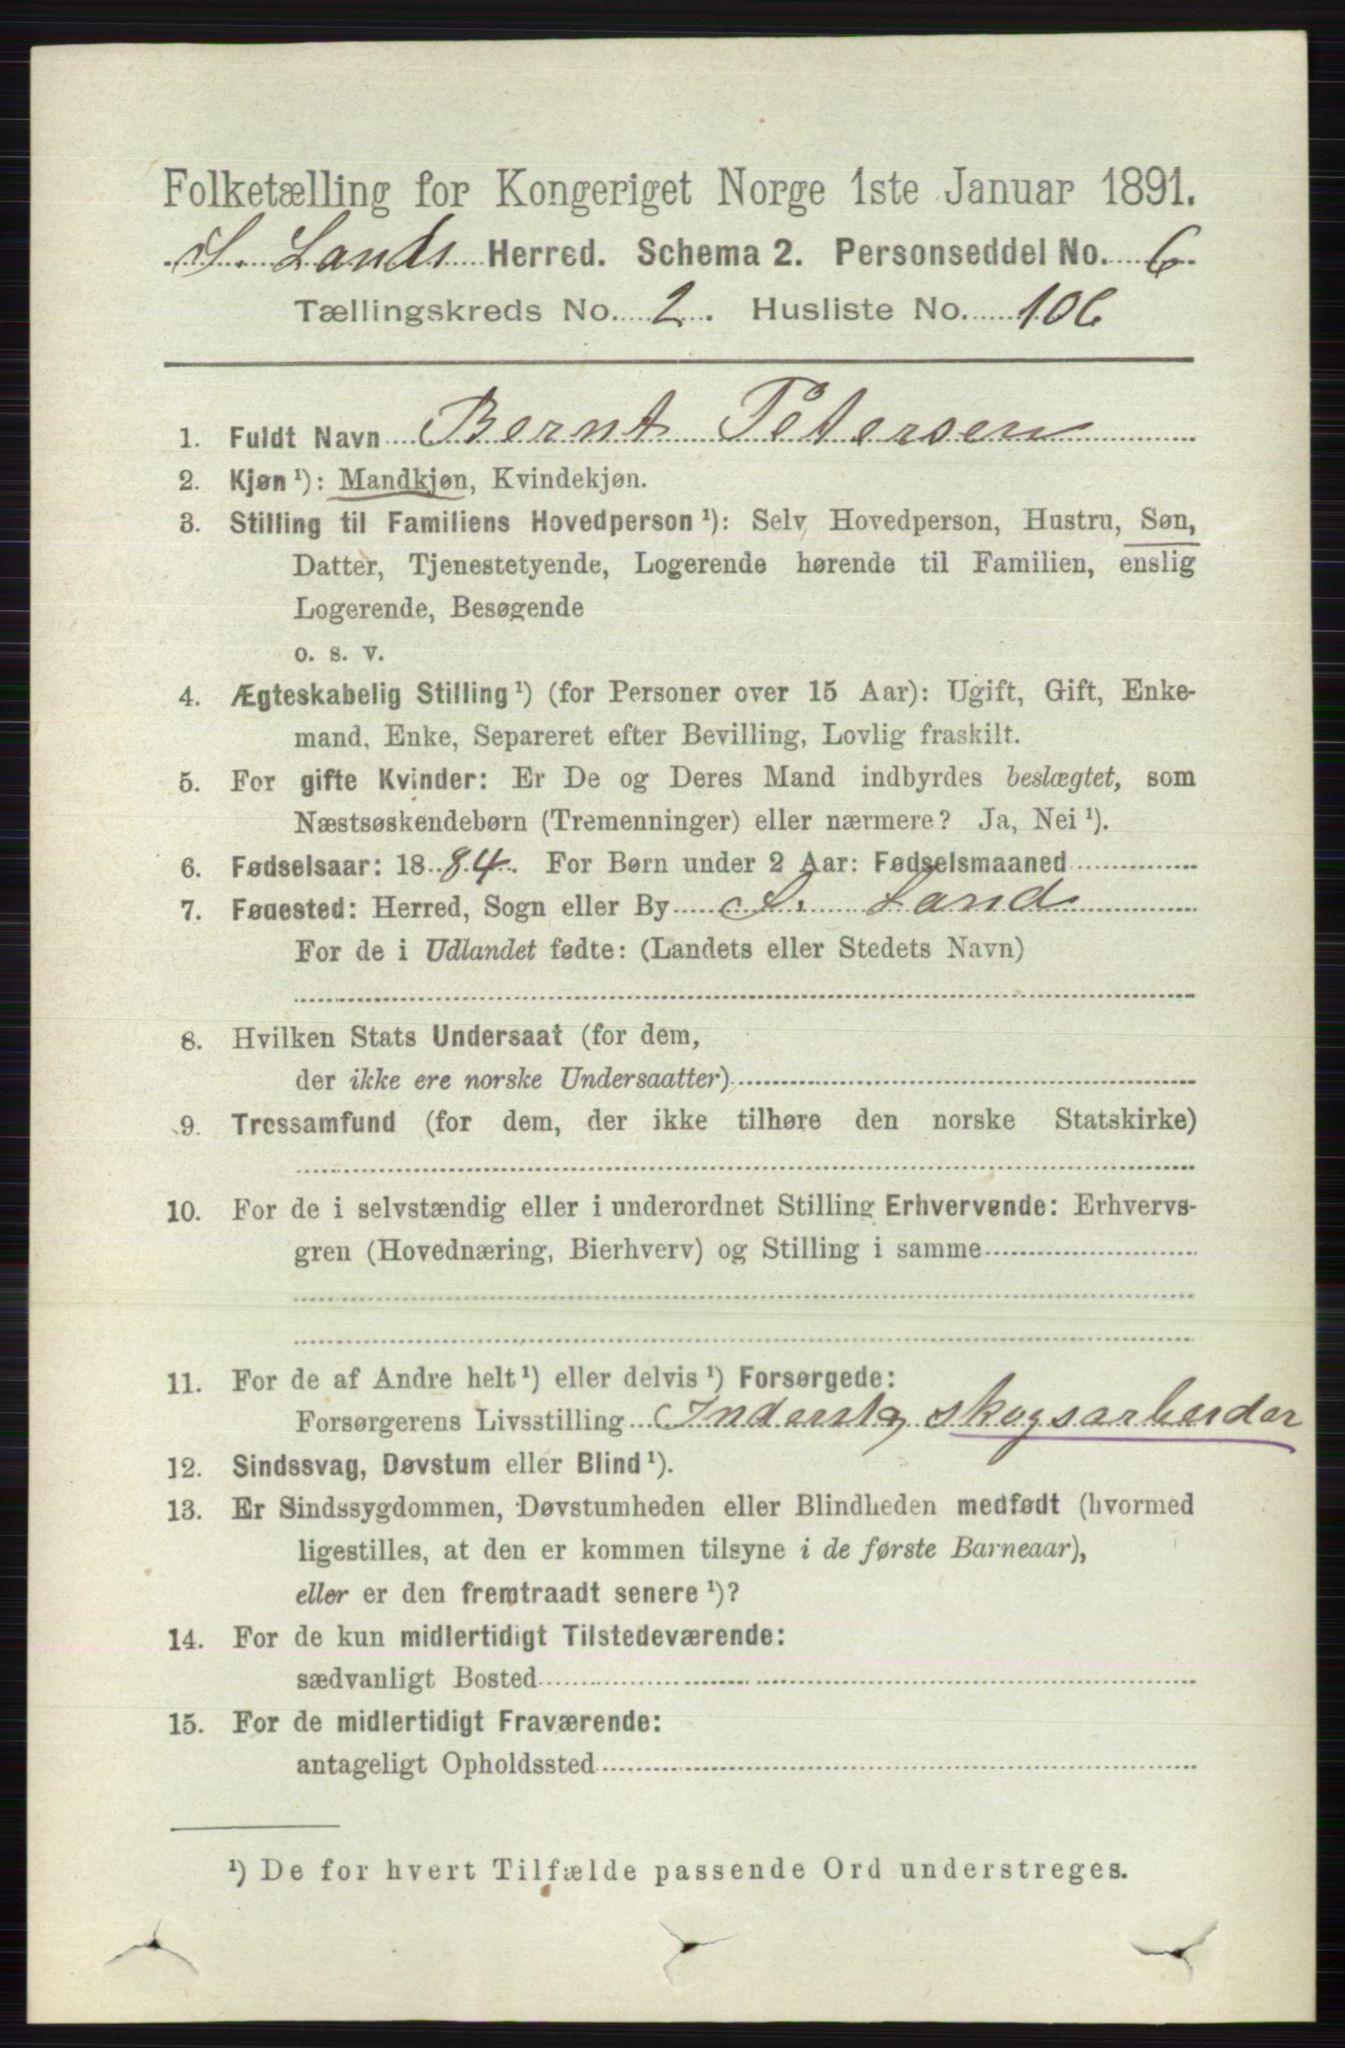 Folketælling for Kongeriget Norge 1ste Januar 1891.
S. Lands Herred. Schema 2. Personseddel No. 6.
Tællingskreds No. 2. Husliste No. 106
1. Fuldt Navn Bernt Petersen
2. Kjøn ¹): Mandkjøn, Kvindekjøn.
3. Stilling til Familiens Hovedperson ¹): Selv Hovedperson, Hustru, Søn,
Datter, Tjenestetyende, Logerende hørende til Familien, enslig
Logerende, Besøgende
o. s. v.
4. Ægteskabelig Stilling ¹) (for Personer over 15 Aar): Ugift, Gift, Enke-
mand, Enke, Separeret efter Bevilling, Lovlig fraskilt.
5. For gifte Kvinder: Er De og Deres Mand indbyrdes beslægtet, som
Næstsøskendebørn (Tremenninger) eller nærmere? Ja, Nei ¹).
6. Fødselsaar: 1884. For Børn under 2 Aar: Fødselsmaaned
7. Føuested: Herred, Sogn eller By S. Land
For de i Udlandet fødte: (Landets eller Stedets Navn)
8. Hvilken Stats Undersaat (for dem,
der ikke ere norske Undersaatter)
9. Trossamfund (for dem, der ikke tilhøre den norske Statskirke)
10. For de i selvstændig eller i underordnet Stilling Erhvervende: Erhvervs-
gren (Hovednæring, Bierhverv) og Stilling i samme
11. For de af Andre helt ¹) eller delvis ¹) Forsørgede:
Forsørgerens Livsstilling Inderst, skogsarbeider
12. Sindssvag, Døvstum eller Blind ¹).
13. Er Sindssygdommen, Døvstumheden eller Blindheden medfødt (hvormed
ligestilles, at den er kommen tilsyne i de første Barneaar),
eller er den fremtraadt senere ¹)?
14. For de kun midlertidigt Tilstedeværende:
sædvanligt Bosted
15. For de midlertidigt Fraværende:
antageligt Opholdssted
¹) De for hvert Tilfælde passende Ord understreges.